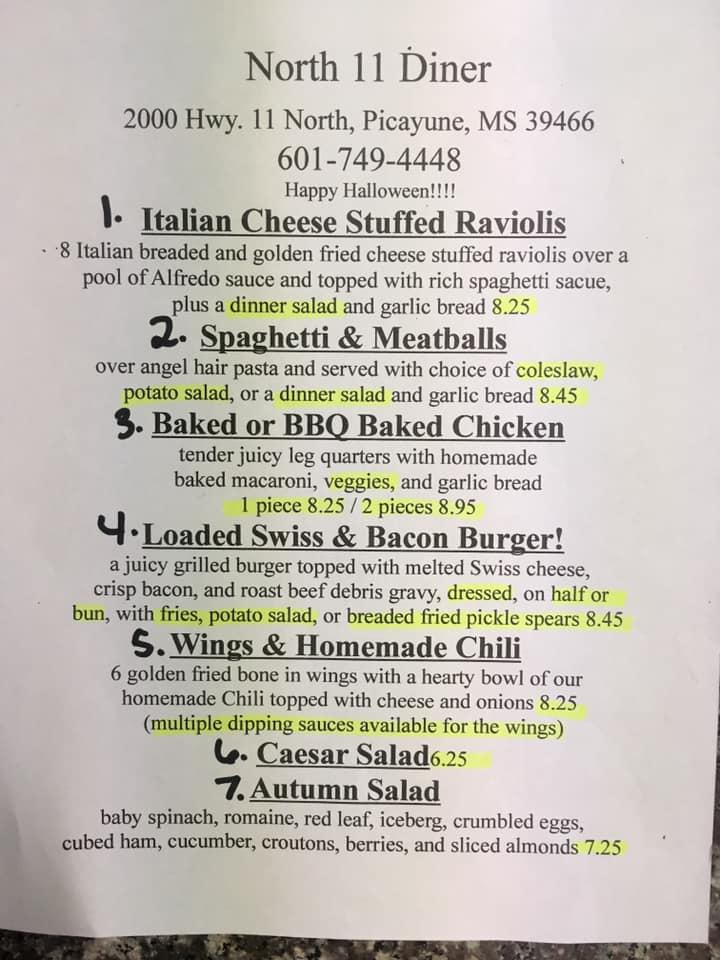 North 11 Diner
2000 Hwy. 11 North, Picayune, MS 39466
601-749-4448
Happy Halloween!!!!
1. Italian Cheese Stuffed Raviolis
8 Italian breaded and golden fried cheese stuffed raviolis over a
pool of Alfredo sauce and topped with rich spaghetti sacue,
plus a dinner salad and garlic bread 8.25
2. Spaghetti & Meatballs
over angel hair pasta and served with choice of coleslaw,
potato salad, or a dinner salad and garlic bread 8.45
3. Baked or BBQ Baked Chicken
tender juicy leg quarters with homemade
baked macaroni, veggies, and garlic bread
1 piece 8.25 / 2 pieces 8.95
4. Loaded Swiss & Bacon Burger!
a juicy grilled burger topped with melted Swiss cheese,
crisp bacon, and roast beef debris gravy, dressed, on half or
bun, with fries, potato salad, or breaded fried pickle spears 8.45
5. Wings & Homemade Chili
6 golden fried bone in wings with a hearty bowl of our
homemade Chili topped with cheese and onions 8.25
(multiple dipping sauces available for the wings)
6. Caesar Salad6.25
7. Autumn Salad
baby spinach, romaine, red leaf, iceberg, crumbled eggs,
cubed ham, cucumber, croutons, berries, and sliced almonds 7.25